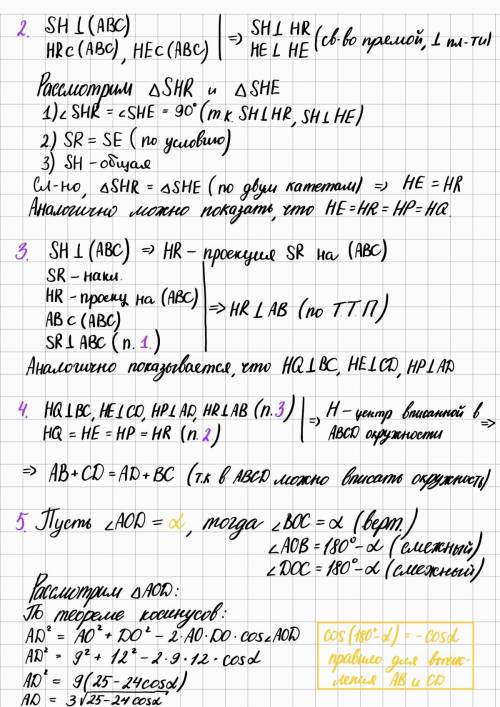 2. SH⊥(ABC)
HR⊂(ABC), HE⊂(ABC)
⇒ SH⊥HR
HE⊥HE (св-во прямой, ⊥ пл-ти)
Рассмотрим △SHR и △SHE
1) ∠SHR = ∠SHE = 90° (т.к. SH⊥HR, SH⊥HE)
2) SR = SE (по условию)
3) SH - общая
Сл-но, △SHR = △SHE (по двум катетам) ⇒ HE = HR
Аналогично можно показать, что HE=HR=HP=HQ.
3. SH⊥(ABC) ⇒ HR - проекция SR на (ABC)
SR - накл.
HR - проекц на (ABC)
AB⊂(ABC)
SR⊥ABC (п. 1.)
⇒ HR⊥AB (по Т.Т.П)
Аналогично показывается, что HQ⊥BC, HE⊥CD, HP⊥AD
4. HQ⊥BC, HE⊥CD, HP⊥AD, HR⊥AB (п.3)
HQ = HE = HP = HR (п.2)
⇒ H - центр вписанной в
ABCD окружности ⇒
⇒ AB+CD = AD+BC (т.к в ABCD можно вписать окружность)
5. Пусть ∠AOD = α, тогда ∠BOC = α (верт.)
∠AOB = 180°-α (смежный)
∠DOC = 180°-α (смежный)
Рассмотрим △AOD:
По теореме косинусов:
AD² = AO² + DO² - 2·AO·DO·cos∠AOD
AD² = 9² + 12² - 2·9·12·cosα
AD² = 9(25-24cosα)
AD = 3√25-24cosα
cos(180°-α) = -cosα
правило для вычис-
ления AB и CD